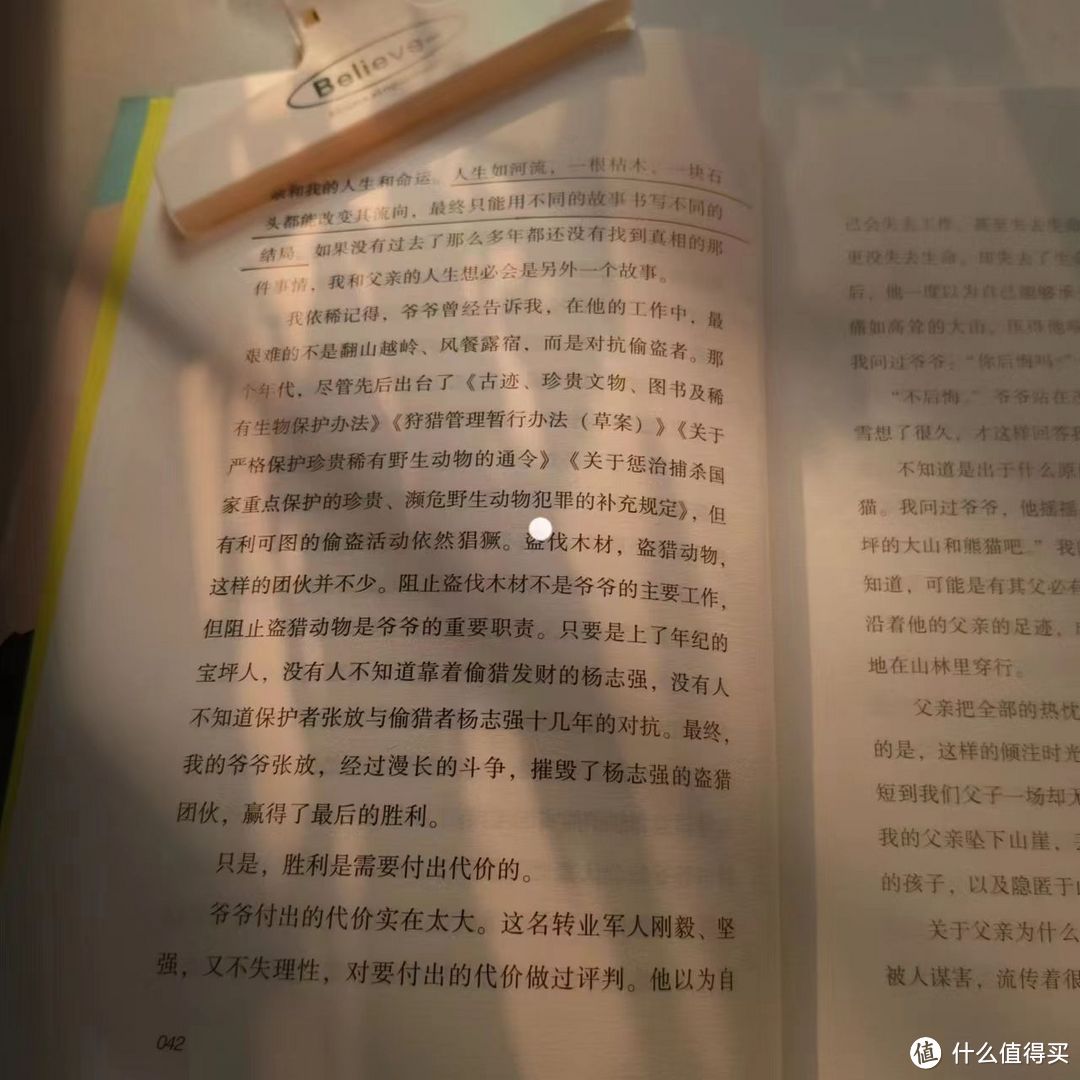 Believe
亲和我的人生和命运。人生如河流，一根枯木、一块石
头都能改变其流向，最终只能用不同的故事书写不同的
结局。如果没有过去了那么多年都还没有找到真相的那
件事情，我和父亲的人生想必会是另外一个故事。
我依稀记得，爷爷曾经告诉我，在他的工作中，最
艰难的不是翻山越岭、风餐露宿，而是对抗偷盗者。那
个年代，尽管先后出台了《古迹、珍贵文物、图书及稀
有生物保护办法》《狩猎管理暂行办法（草案）》《关于
严格保护珍贵稀有野生动物的通令》《关于惩治捕杀国
家重点保护的珍贵、濒危野生动物犯罪的补充规定》，但
有利可图的偷盗活动依然猖獗。盗伐木材，盗猎动物，
这样的团伙并不少。阻止盗伐木材不是爷爷的主要工作，
但阻止盗猎动物是爷爷的重要职责。只要是上了年纪的
宝坪人，没有人不知道靠着偷猎发财的杨志强，没有人
不知道保护者张放与偷猎者杨志强十几年的对抗。最终，
我的爷爷张放，经过漫长的斗争，摧毁了杨志强的盗猎
团伙，赢得了最后的胜利。
只是，胜利是需要付出代价的。
爷爷付出的代价实在太大。这名转业军人刚毅、坚
强，又不失理性，对要付出的代价做过评判。他以为自
042
己会失去工作，甚至失去生命
更没失去生命，却失去了生
后，他一度以为自己能够承
痛如高耸的大山，压得他
我问过爷爷，“你后悔吗？”
“不后悔。”爷爷站在
雪想了很久，才这样回答
不知道是出于什么原
猫。我问过爷爷，他摇摇
坪的大山和熊猫吧。”我
知道，可能是有其父必有
沿着他的父亲的足迹，
地在山林里穿行。
父亲把全部的热忱
的是，这样的倾注时光
短到我们父子一场却无
我的父亲坠下山崖，
的孩子，以及隐匿于
关于父亲为什么
被人谋害，流传着很
值 什么值得买